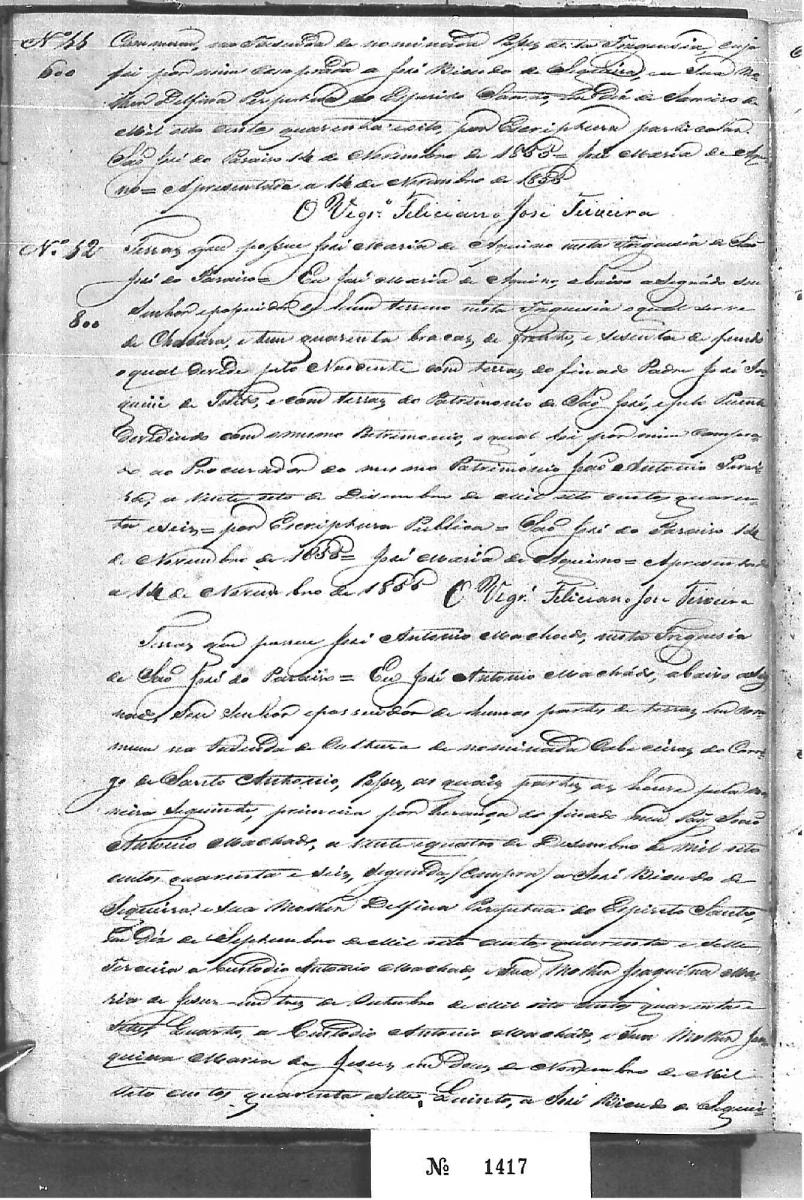 Nº 51 Commum, na Fasenda de nominada Pepes desta Freguesia, cuja
600 foi por mim comprada a José Bicudo de Siqueira, e sua Mo
lher Delfina Perpetua do Espirito Santo, em Dés de Janeiro de
Mil oito centos quarenta e oito, por Escriptura particular
São José do Paraizo 14 de Novembro de 1855 = José Maria de Aqui
no = Apresentada a 14 de Novembro de 1855
O Vigrº Feliciano José Teixeira
Nº 52 Terras que possue José Maria de Aquino nesta Freguesia de São
José do Paraizo = Eu José Maria de Aquino abaixo asignado sou
800 Senhor e possuidor de hum terreno nesta Freguesia o qual serve
de Chacara, e tem quarenta braças de frente, e sesenta de fundo
o qual devide pelo Nascente com terras do finado Padre José Joa
quim de Toledo, e com terras do Patrimonio de São José, e pelo Puente
devedindo com o mesmo Patrimonio, o qual foi por mim compra
do ao Procurador do mesmo Patrimonio João Antonio Perei
ra, a vinte oito de Desembro de Mil oito centos quaren
ta e seis = por Escriptura Publica = São José do Paraizo 14
de Novembro de 1855 = José Maria de Aquino = Apresentada
a 14 de Novembro de 1855 O Vigrº Feliciano José Teixeira
Terras que possue José Antonio Machado, nesta Freguesia
de São José do Paraizo = Eu José Antonio Machado, abaixo asig
nado, sou Senhor e possuidor de humas partes de terras em com
mum na Fasenda de Cultura de nominada Cabeceiras do Corre
go de Santo Antonio, Pepes, as quais partes as houve pela ma
neira seguinte, primeira por herança do finado meu Pai João
Antonio Machado, a vinte e quatro de Desembro de mil oito
centos quarenta e seis, segunda, (compra) a José Bicudo de
Siqueira, e sua Molher Delfina Perpetua do Espirito Santo,
em Dés de Septembro de Mil oito centos quarenta e sette
Terceira a Custodio Antonio Machado, e sua Molher Joaquina Ma
ria de Jesus em tres de Outubro de Mil oito centos quarenta e
sette, Quarto, a Custodio Antonio Machado, e sua Molher Joa
quina Maria de Jesus, em Dous de Novembro de Mil
oito centos quarenta e sette. Quinto, a José Bicudo de Siquei
Nº 1417